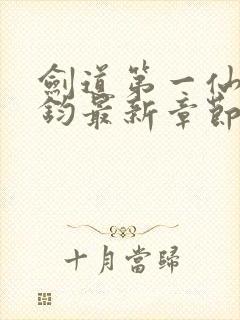 劍道第一仙
鈞最新章節
十月當歸